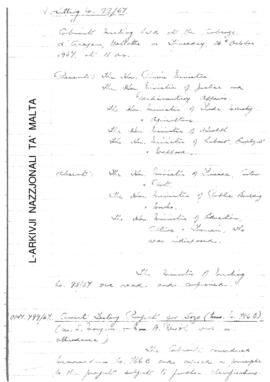 Sitting No. 77/67.
Cabinet Meeting held at the Auberge
d'Aragon, Valletta on Thursday, 26th October
1967, at 11 a.m.
Present: The Hon. Prime Minister
The Hon. Minister of Justice and
Parliamentary Affairs
The Hon. Minister of Trade, Industry
+ Agriculture
The Hon. Minister of Health
The Hon. Minister of Labour, Employment
+ Welfare.
Absent: The Hon. Minister of Finance, Customs
+ Ports
The Hon. Minister of Public Building
+ Works
The Hon. Minister of Education,
Culture + Tourism, who
was indisposed.
The Minutes of Meeting
No. 76/67 were read and confirmed.
Cement Factory Project for Gozo (Memo. No. 766B)
was in
attendance)
The Cabinet considered
Memorandum No. 766B and agreed in principle
to the project subject to further clarifications
L-ARKIVJI NAZZJONALI TA' MALTA